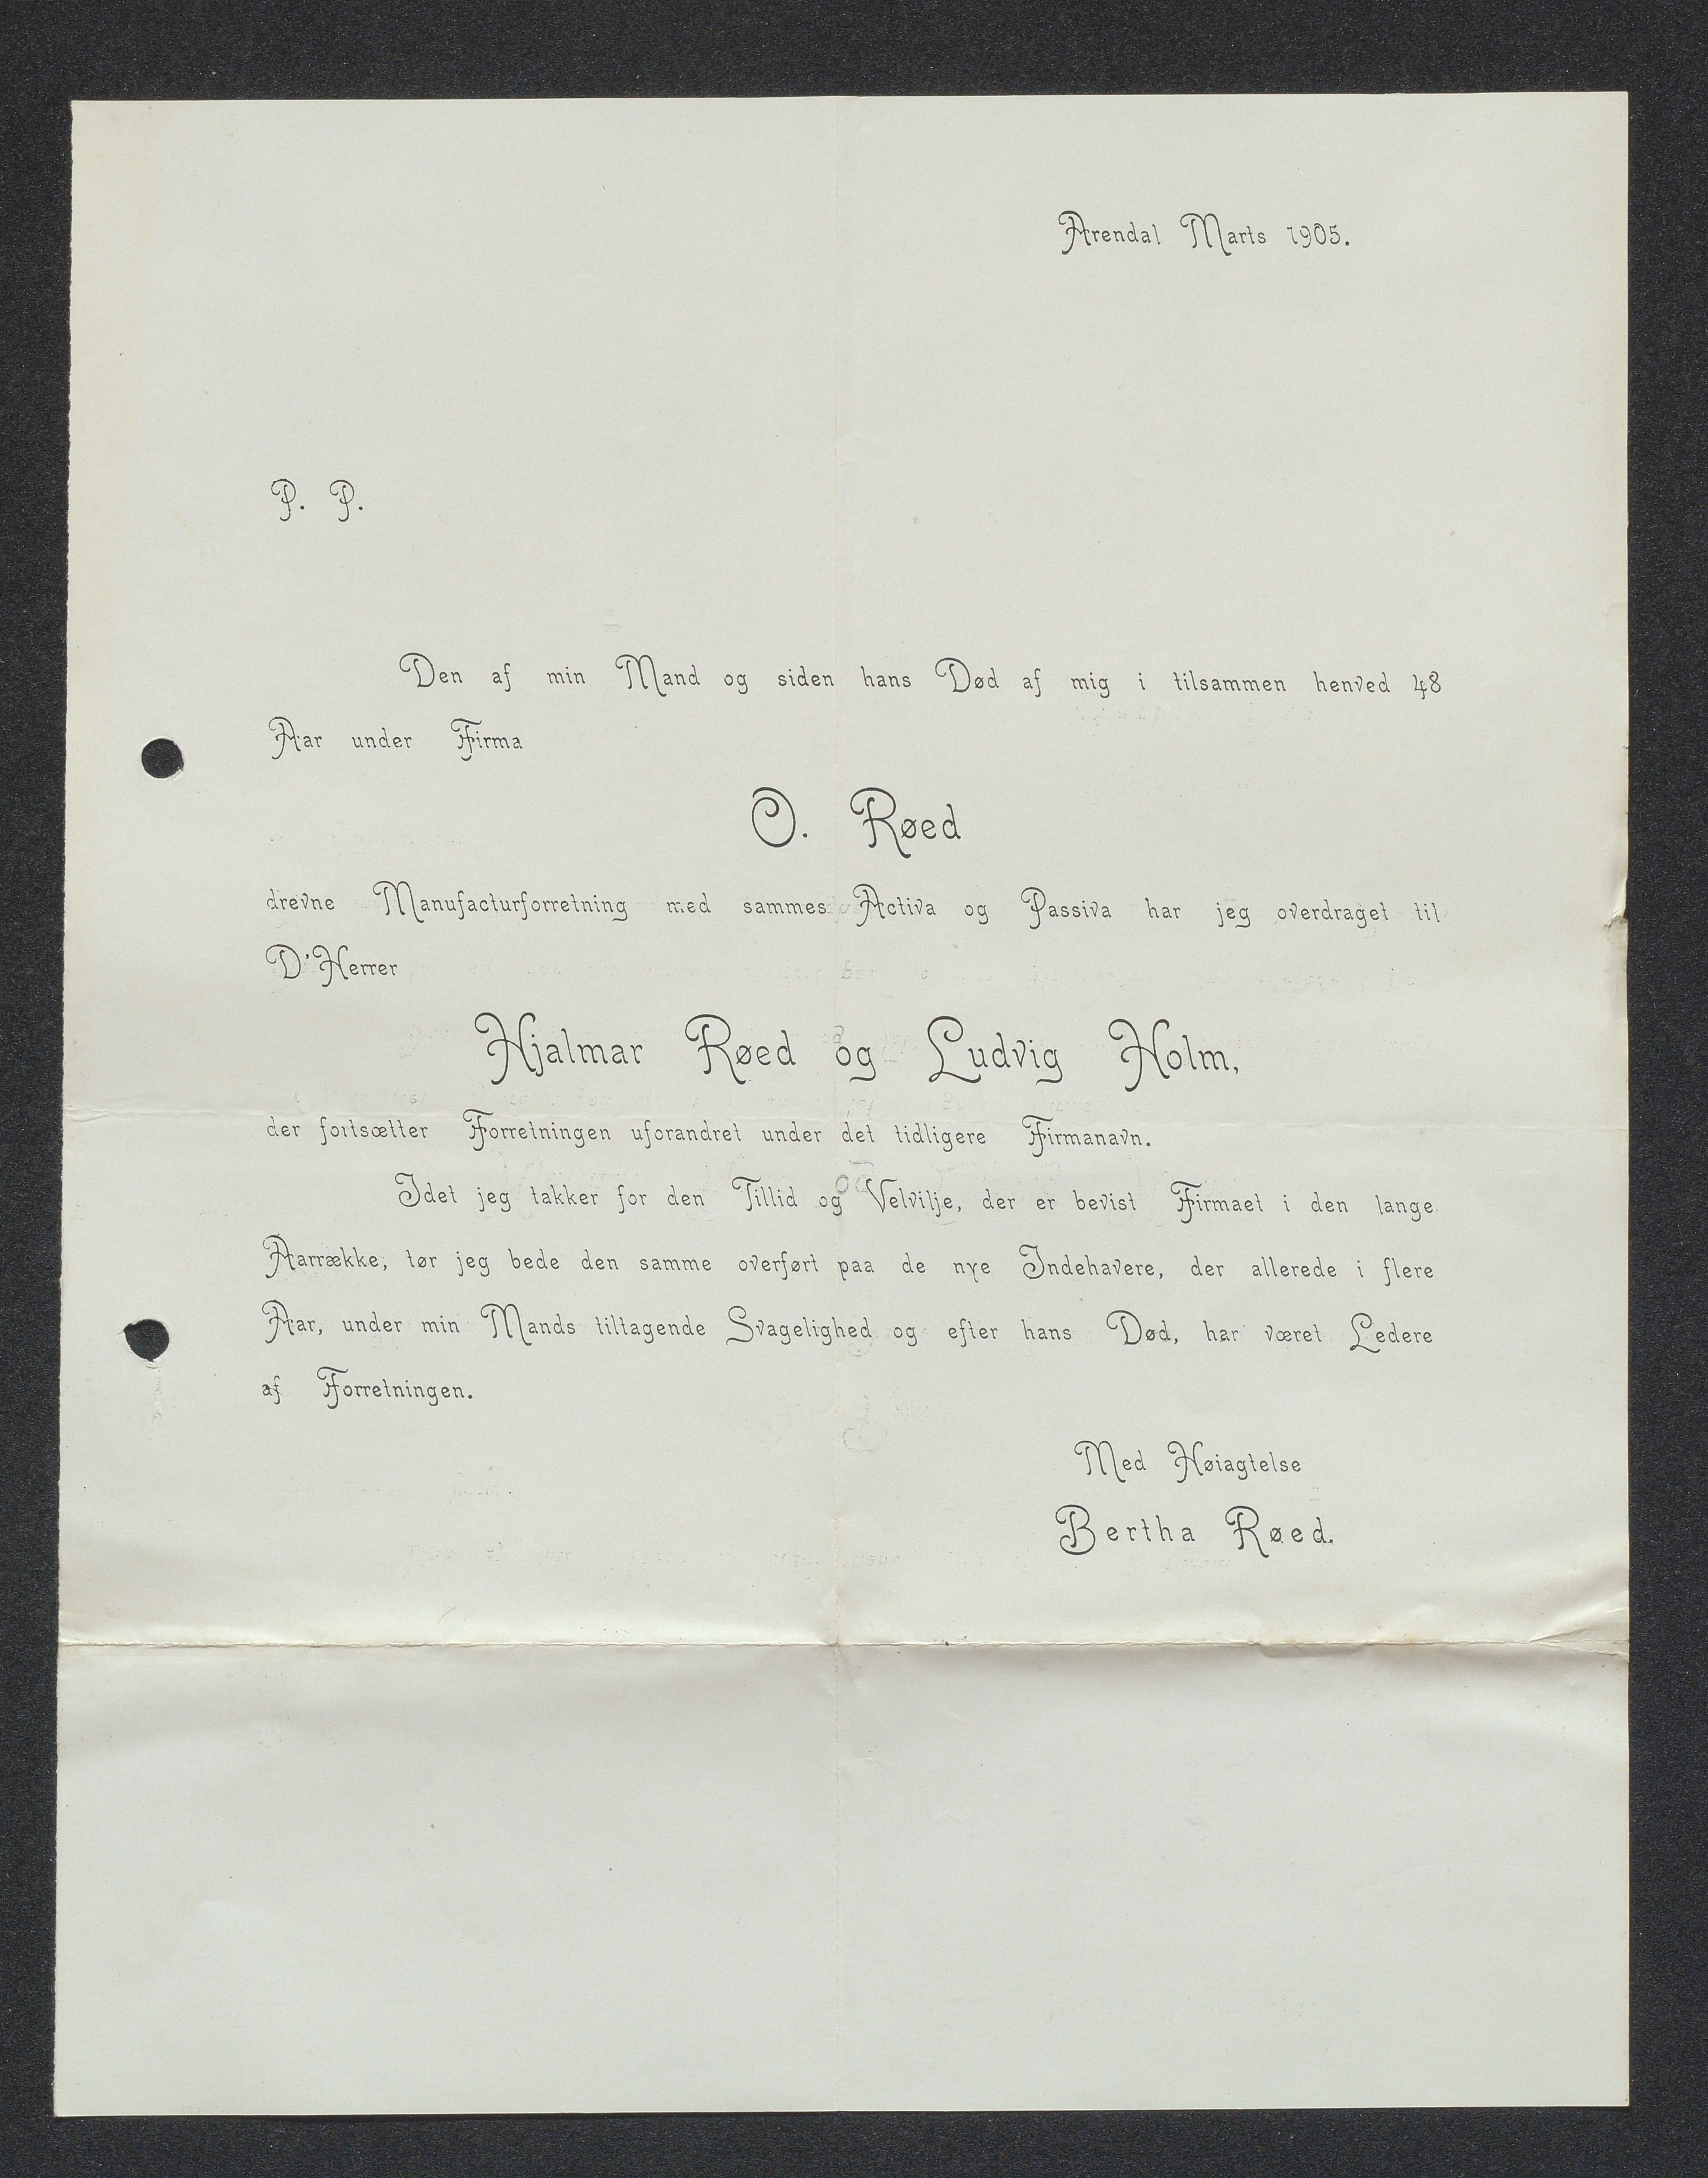 Arendal Marts 1905.
P. P.
Den af min Mand og siden hans Død af mig i tilsammen henved 48
Aar under Firma
O. Røed
drevne Manufacturforretning med sammes Activa og Passiva har jeg overdraget til
D'Herrer
Hjalmar Røed og Ludvig Holm,
der fortsætter Forretningen uforandret under det tidligere Firmanavn.
Idet jeg takker for den Tillid og Velvilje, der er bevist Firmaet i den lange
Aarrække, tør jeg bede den samme overført paa de nye Indehavere, der allerede i flere
Aar, under min Mands tiltagende Svagelighed og efter hans Død, har været Ledere
af Forretningen.
Med Høiagtelse
Bertha Røed.